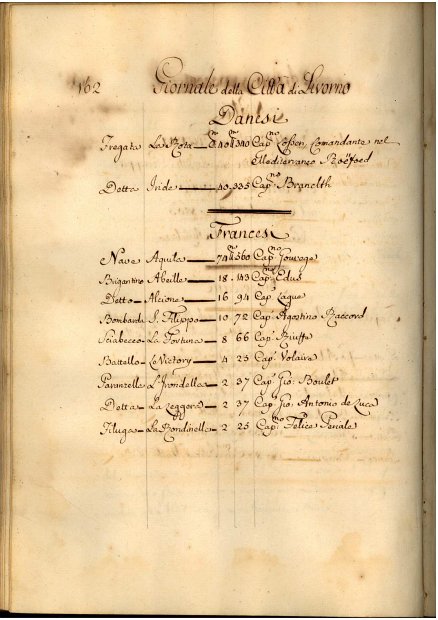 162 Giornale della Città di Livorno
Danesi
Fregata La Rota 40 340 Cap.no Comandante nel
Mediterraneo
Detta Iride 40 335 Cap.no
Francesi
Nave Aquila 74 560 Cap.no
Brigantino Abeille 18 143 Cap.
Detto Alcione 16 94 Cap.
Bombarda S. Filippo 10 72 Cap. Agostino Raccord
Sciabecco La Fortuna 8 66 Cap.
Battello Le Victory 4 23 Cap. Volaire
Paranzella L'Irondella 2 37 Cap. Gio: Boulet
Detta La Leggera 2 37 Cap. Gio: Antonio de Luca
Filuga La Rondinella 2 25 Cap. Felice